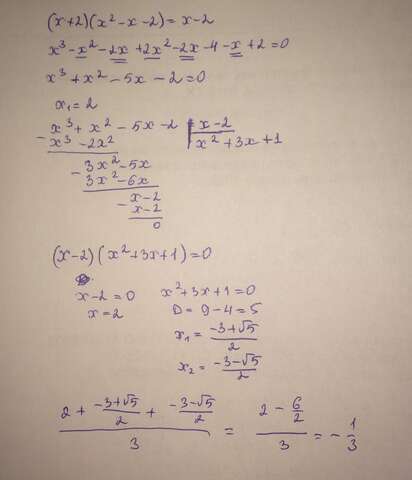 (x+2)(x²-x-2)=x-2
x³-x²-2x+2x²-2x-4-x+2=0
x³+x²-5x-2=0
x₁=2
x³+x²-5x-2 | x-2
- x³-2x² | x²+3x+1
3x²-5x
- 3x²-6x
x-2
- x-2
0
(x-2)(x²+3x+1)=0
x-2=0 x²+3x+1=0
x=2 D=9-4=5
x₁= (-3+√5)/2
x₂= (-3-√5)/2
(2 + (-3+√5)/2 + (-3-√5)/2)/3 = (2 - 6/2)/3 = -1/3